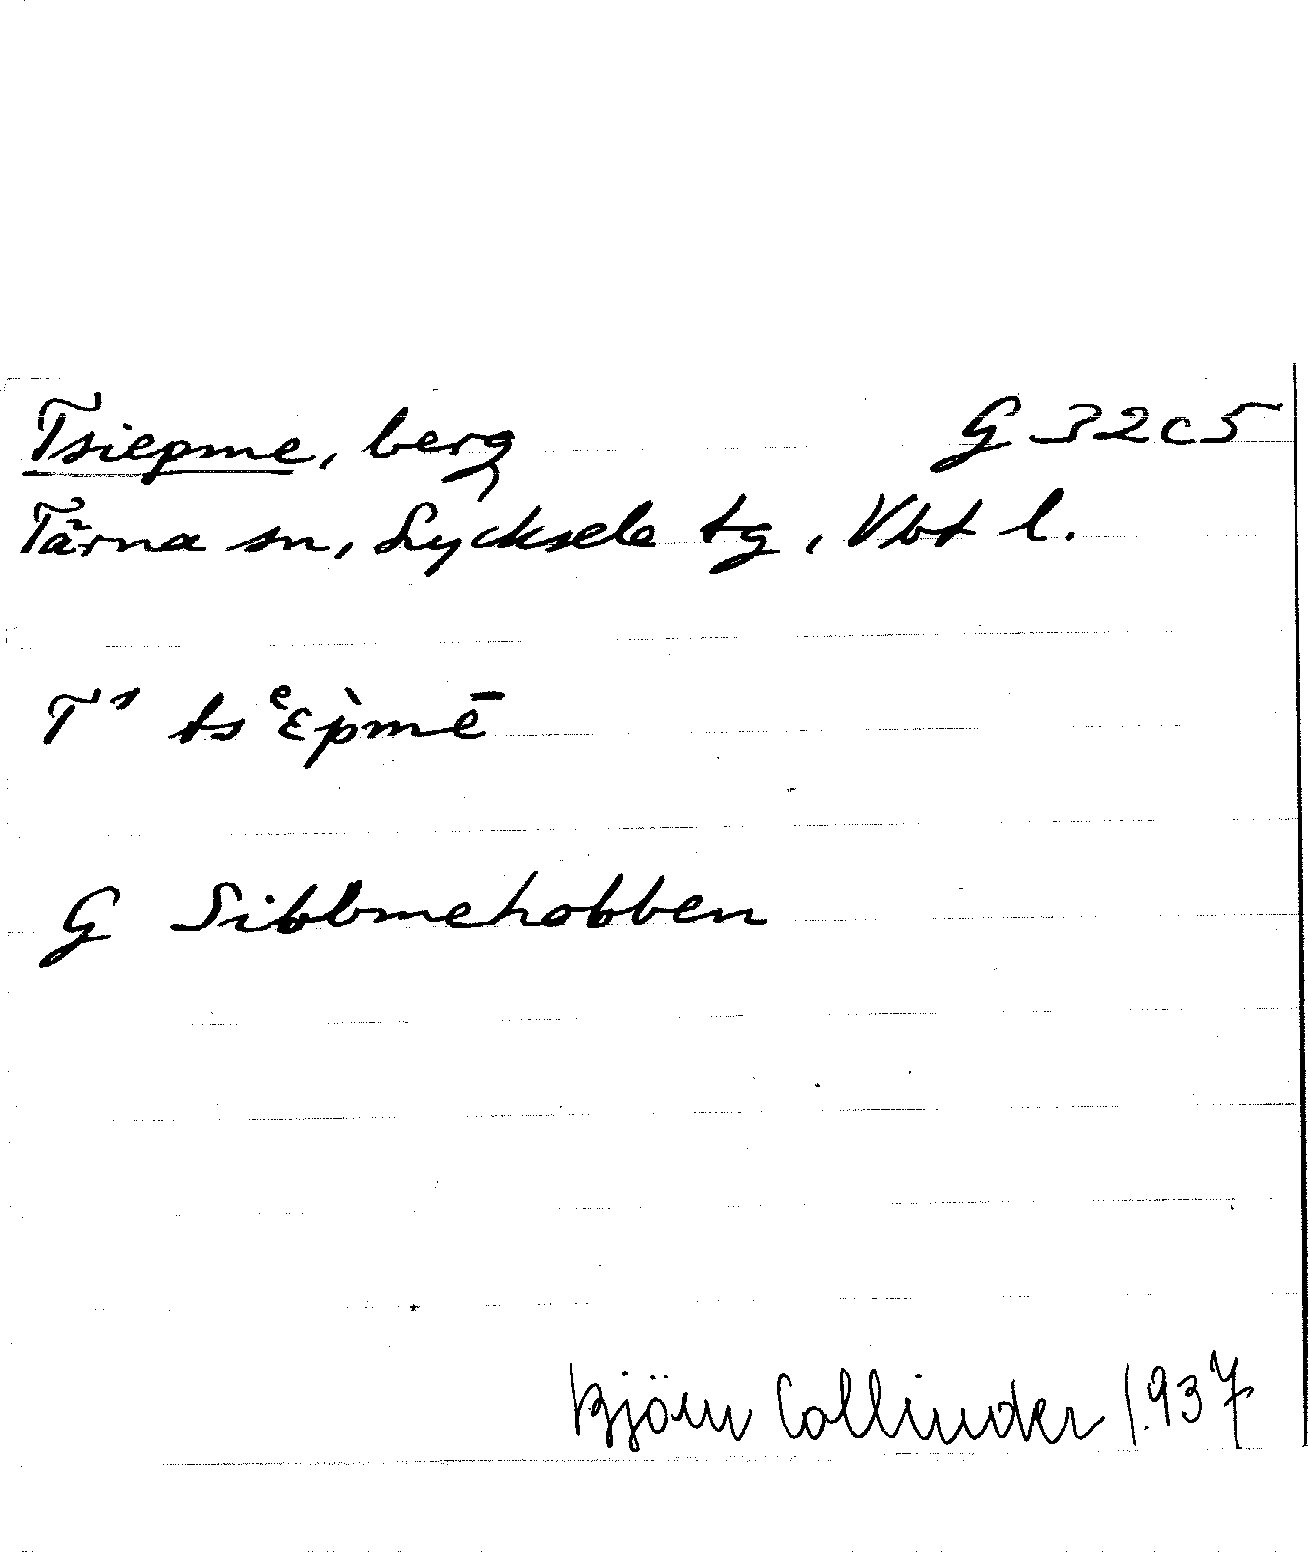 Tsiepme, berg G 32 c 5
Tärna sn, Lycksele tg, Vbt l.
T¹ tsᵉɛp̀mē
G Sibbmehobben
Björn Collinder 1937